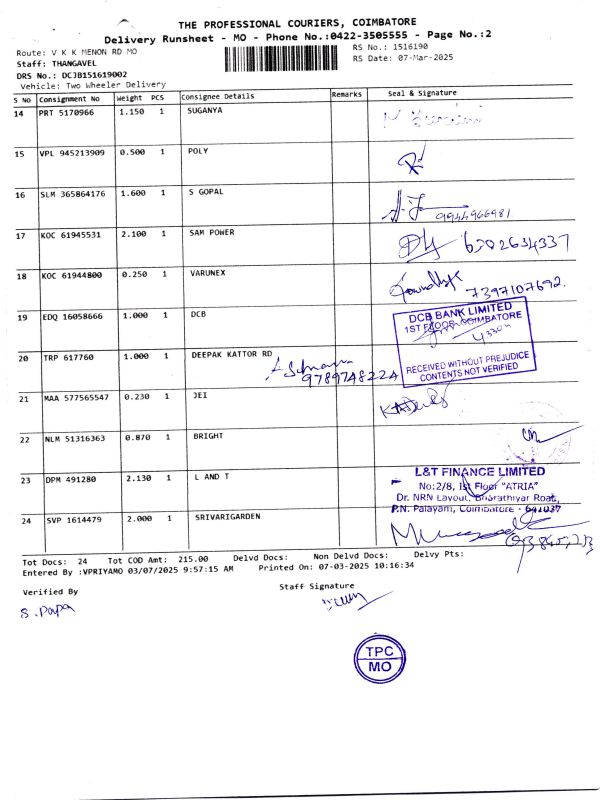 THE PROFESSIONAL COURIERS, COIMBATORE
Delivery Runsheet - MO - Phone No.:0422-3505555 - Page No.:2
Route: V K K MENON RD MO
RS No.: 1516190
Staff: THANGAVEL
RS Date: 07-Mar-2025
DRS No.: DCJB151619002
Vehicle: Two Wheeler Delivery
S No Consignment No Weight PCS Consignee Details Remarks Seal & Signature
14 PRT 5170966 1.150 1 SUGANYA
15 VPL 945213909 0.500 1 POLY
16 SLM 365864176 1.600 1 S GOPAL
9944966981
17 KOC 61945531 2.100 1 SAM POWER
6302634337
18 KOC 61944800 0.250 1 VARUNEX
7397107692.
19 EDQ 16058666 1.000 1 DCB
DCB BANK LIMITED
1ST FLOOR COIMBATORE
RECEIVED WITHOUT PREJUDICE
CONTENTS NOT VERIFIED
20 TRP 617760 1.000 1 DEEPAK KATTOR RD
9789748224
21 MAA 577565547 0.230 1 JEI
22 NLM 51316363 0.870 1 BRIGHT
23 DPM 491280 2.130 1 L AND T
L&T FINANCE LIMITED
No:2/8, Ist Floor "ATRIA"
Dr. NRN Layout, Bharathiyar Road,
P.N. Palayam, Coimbatore - 641037
24 SVP 1614479 2.000 1 SRIVARIGARDEN
Tot Docs: 24 Tot COD Amt: 215.00 Delvd Docs: Non Delvd Docs: Delvy Pts:
Entered By :VPRIYAMO 03/07/2025 9:57:15 AM Printed On: 07-03-2025 10:16:34
Verified By
Staff Signature
S. Papa
TPC
MO